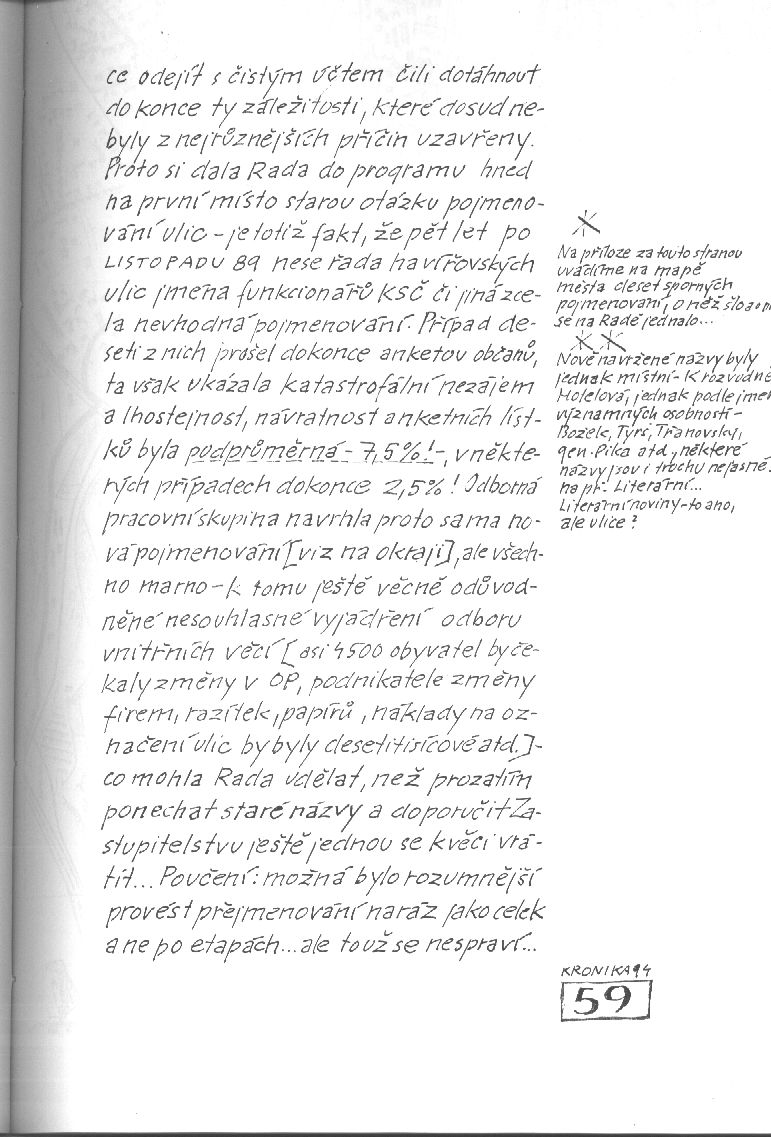 ce odejít s čistým účtem čili dotáhnout
do konce ty záležitosti, které dosud ne-
byly z nejrůznějších příčin uzavřeny.
Proto si dala Rada do programu hned
na první místo starou otázku pojmeno-
vání ulic - je totiž fakt, že pět let po
LISTOPADU 89 nese řada havířovských
ulic jména funkcionářů KSČ či jiná zce-
la nevhodná pojmenování. Případ de-
seti z nich prošel dokonce anketou občanů,
ta však ukázala katastrofální nezájem
a lhostejnost, návratnost anketních líst-
ků byla podprůměrná - 7,5%! -, v někte-
rých případech dokonce 2,5%! Odborná
pracovní skupina navrhla proto sama no-
vá pojmenování [viz na okraji], ale všech-
no marno - k tomu ještě věcně odůvod-
něné nesouhlasné vyjádření odboru
vnitřních věcí [asi 4500 obyvatel by če-
kaly změny v OP, podnikatele změny
firem, razítek, papírů, náklady na oz-
načení ulic by byly desetitisícové atd.] -
co mohla Rada udělat, než prozatím
ponechat staré názvy a doporučit Za-
stupitelstvu ještě jednou se k věci vrá-
tit... Poučení: možná bylo rozumnější
provést přejmenování naráz jako celek
a ne po etapách... ale to už se nespraví...
*
Na příloze za touto stranou
uvádíme na mapě
města deset sporných
pojmenování, o něž šlo a o
se na Radě jednalo...
* *
Nově navržené názvy byly
jednak místní - K rozvodně
Hotelová, jednak podle jmen
významných osobností -
Božek, Tyrš, Třanovský,
gen. Píka atd., některé
názvy jsou i trochu nejasné.
např. Literární...
Literární noviny - to ano,
ale ulice?
KRONIKA 94
59